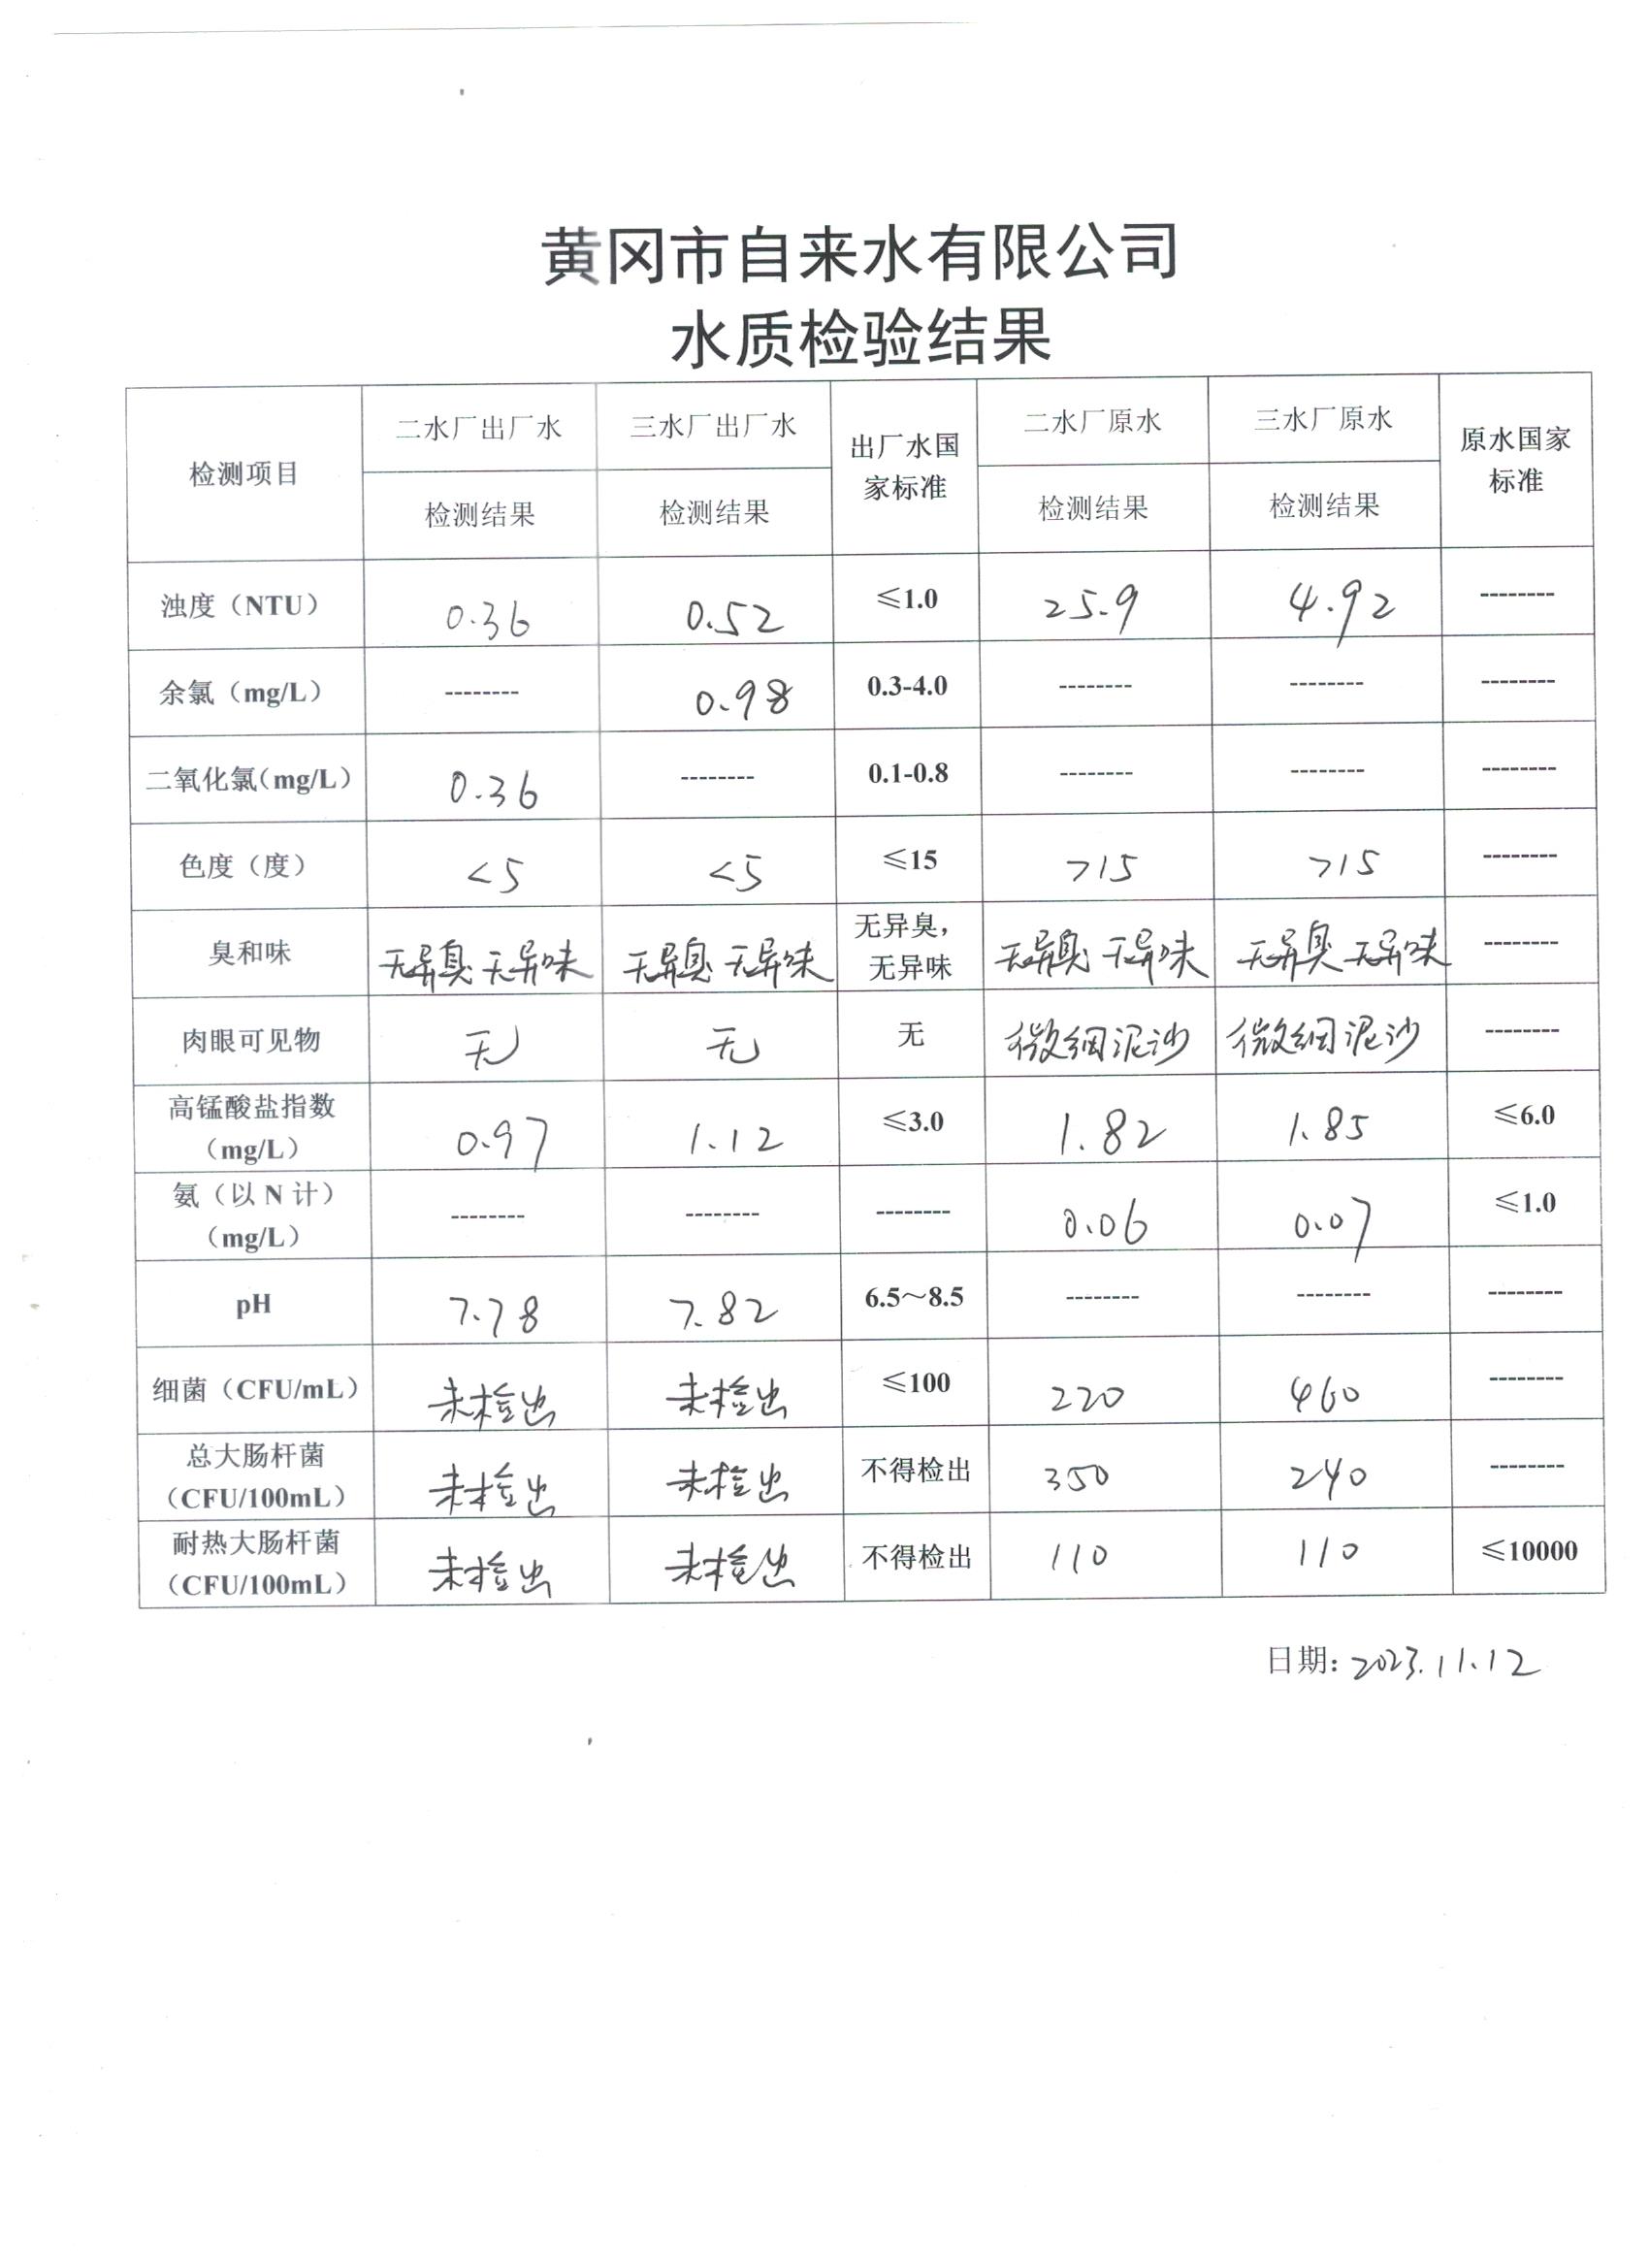 黄冈市自来水有限公司
水质检验结果
检测项目 二水厂出厂水 三水厂出厂水 出厂水国家标准 二水厂原水 三水厂原水 原水国家标准
检测结果 检测结果 检测结果 检测结果
浊度（NTU） 0.36 0.52 ≤1.0 25.9 4.92 --------
余氯（mg/L） -------- 0.98 0.3-4.0 -------- -------- --------
二氧化氯（mg/L） 0.36 -------- 0.1-0.8 -------- -------- --------
色度（度） <5 <5 ≤15 >15 >15 --------
臭和味 无异臭 无异味 无异臭 无异味 无异臭，无异味 无异臭 无异味 无异臭 无异味 --------
肉眼可见物 无 无 无 微细泥沙 微细泥沙 --------
高锰酸盐指数（mg/L） 0.97 1.12 ≤3.0 1.82 1.85 ≤6.0
氨（以 N 计）（mg/L） -------- -------- -------- 0.06 0.07 ≤1.0
pH 7.78 7.82 6.5～8.5 -------- -------- --------
细菌（CFU/mL） 未检出 未检出 ≤100 220 460 --------
总大肠杆菌（CFU/100mL） 未检出 未检出 不得检出 350 240 --------
耐热大肠杆菌（CFU/100mL） 未检出 未检出 不得检出 110 110 ≤10000
日期: 2023.11.12